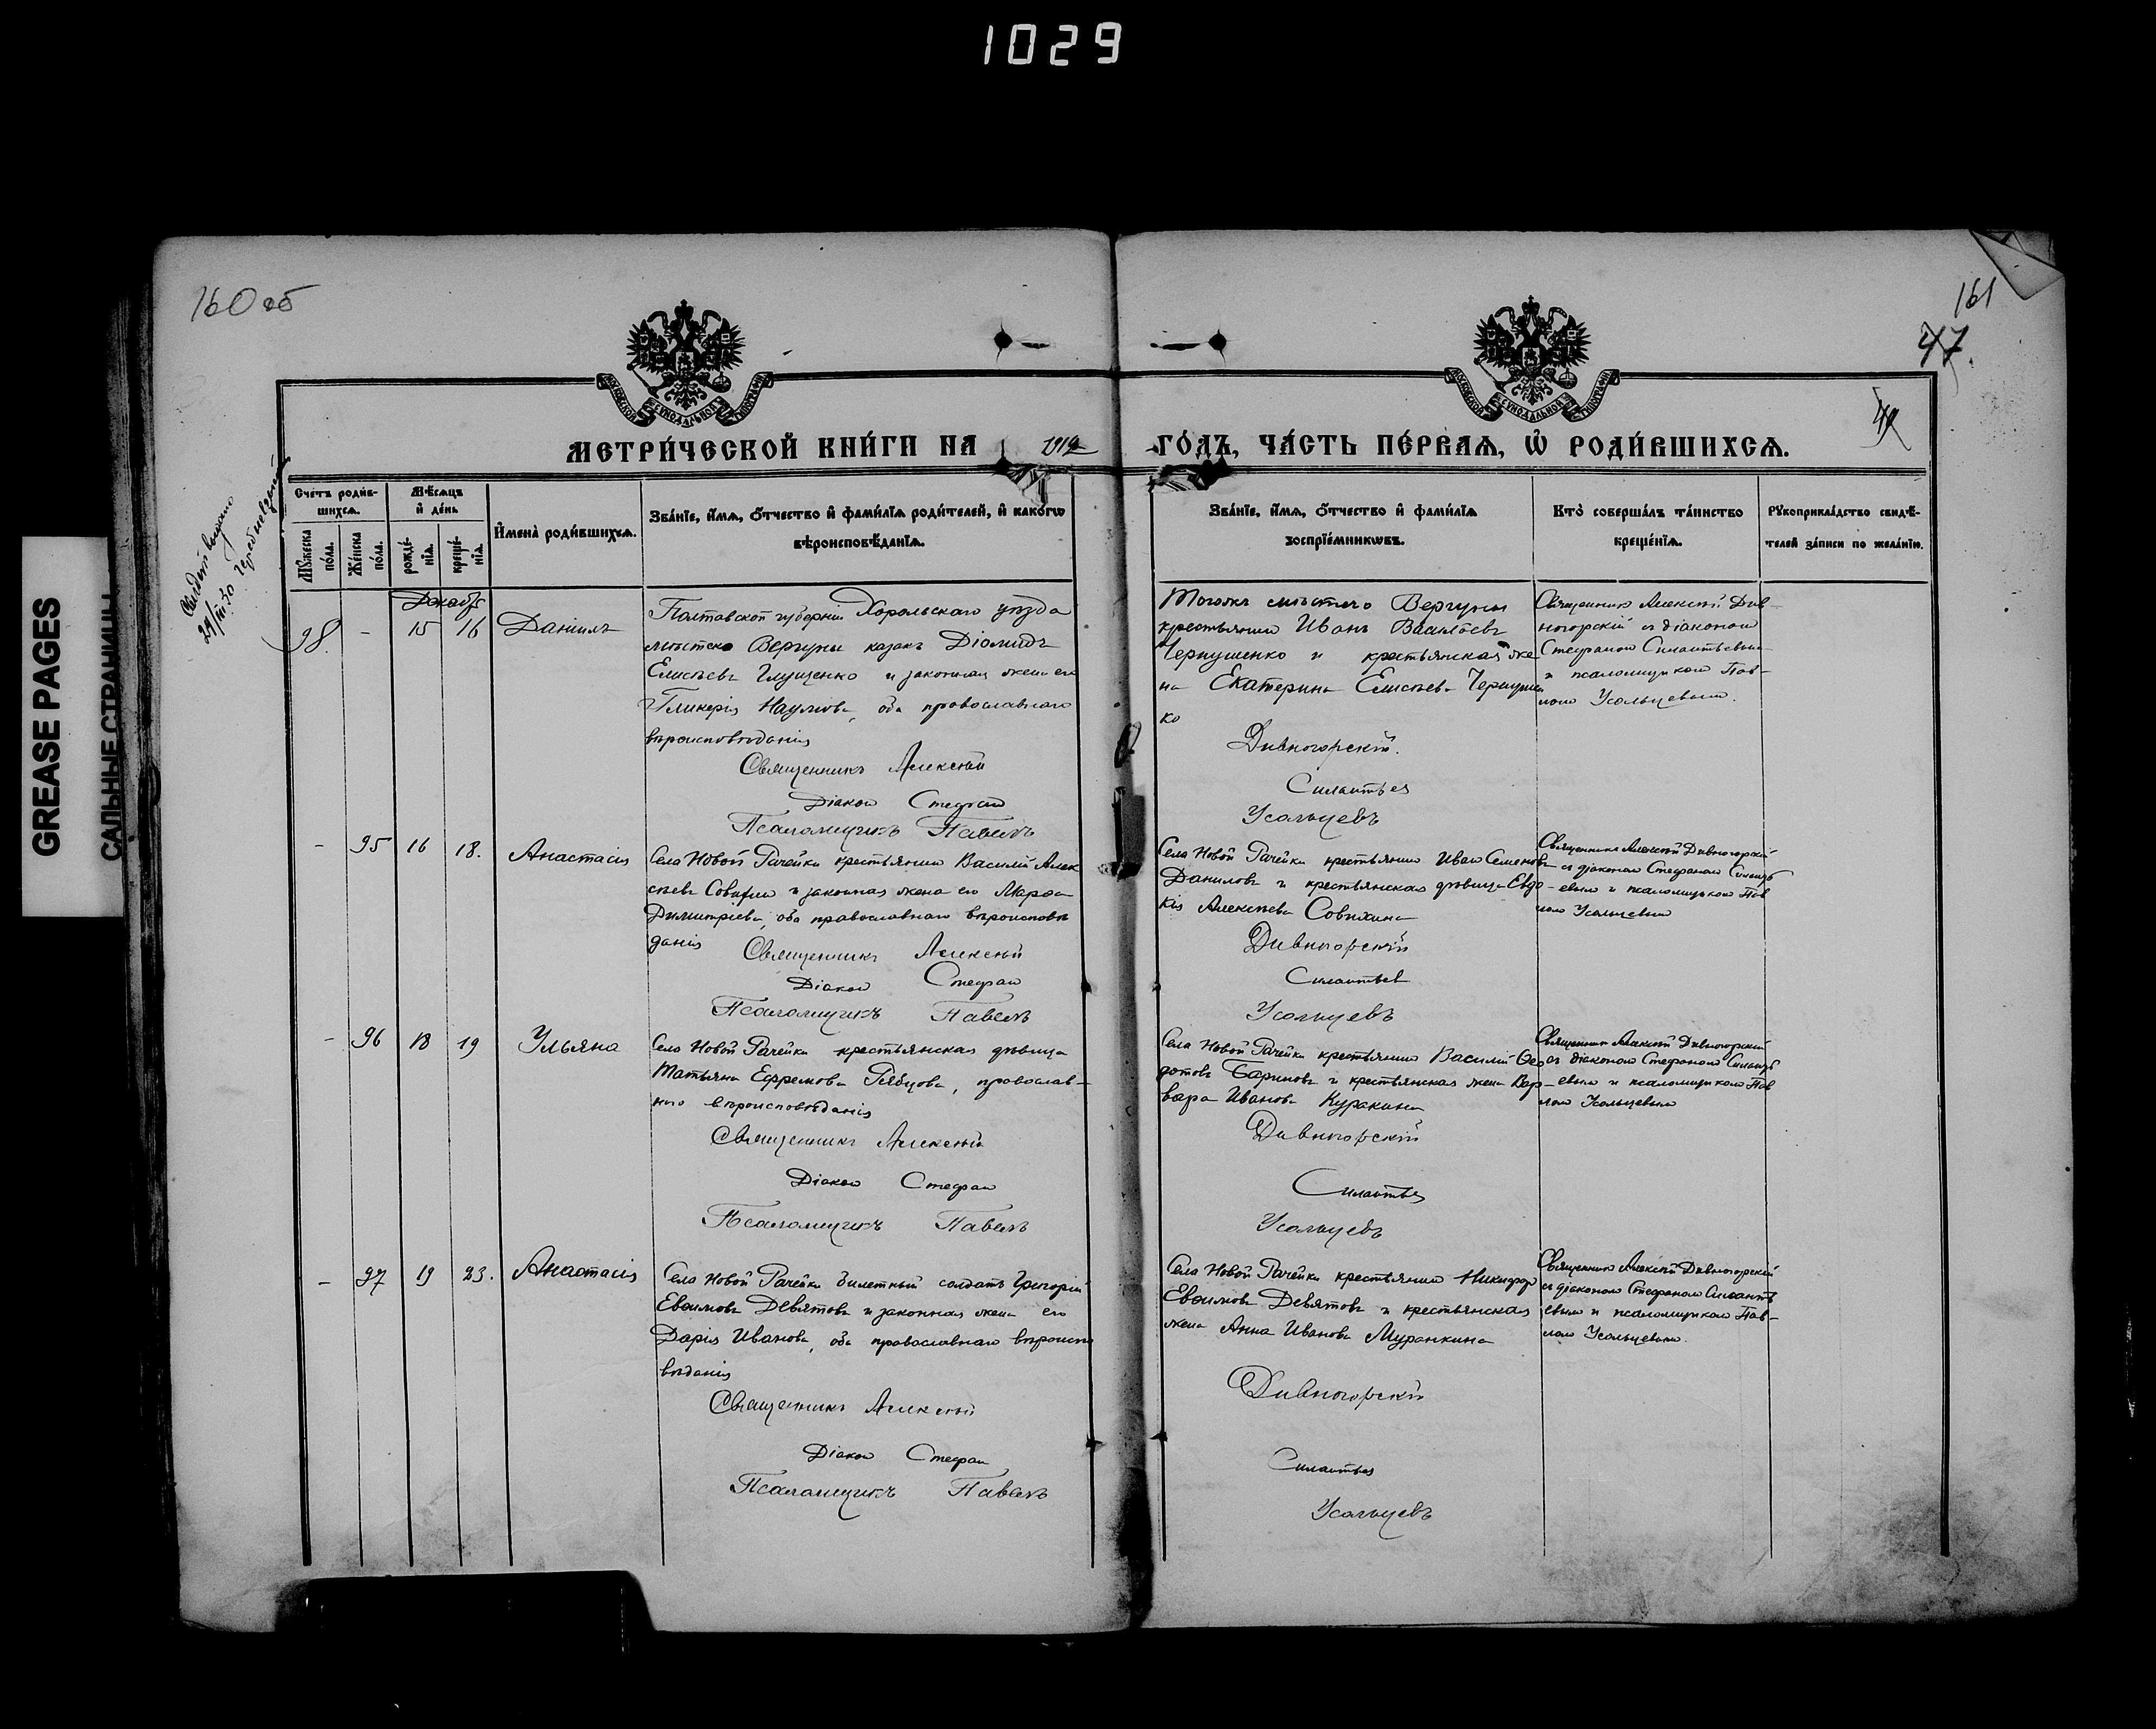 1029
GREASE PAGES
САЛЬНЫЕ СТРАНИЦЫ
160 об
161
47.
Свидет. выдано
24/III 30
МОСКОВСКОЙ СѴНОДАЛЬНОЙ ТИПОГРАФІИ
МОСКОВСКОЙ СѴНОДАЛЬНОЙ ТИПОГРАФІИ
МЕТРИ́ЧЕСКОЙ КНИ́ГИ НА 1912 ГО́ДЪ, ЧА́СТЬ ПЕ́РВАѦ, Ѡ҆ РОДИ́ВШИХСѦ.
Сче́тъ роди́в-
шихсѧ.
Мꙋ́жеска по́ла.
Же́нска по́ла.
Мѣ́сѧцъ
и҆ де́нь
рожде́-
нїѧ.
креще́-
нїѧ.
И҆мена̀ роди́вшихсѧ.
Зва́нїе, и҆́мѧ, ѻ҆́тчество и҆ фами́лїѧ роди́телей, и҆ како́гѡ
вѣроисповѣ́данїѧ.
Зва́нїе, и҆́мѧ, ѻ҆́тчество и҆ фами́лїѧ
воспрїе́мникѡвъ.
Кто̀ соверша́лъ та́инство
креще́нїѧ.
Рꙋкоприкла́дство свидѣ́-
телей за́писи по жела́нїю.
Декабр
98. - 15 16 Даніилъ
Полтавской губерніи Хорольскаго уѣзда
мѣстечко Вергуны казакъ Діомидъ
Елисѣевъ Глущенко и законная жена его
Гликерія Наумова, оба православнаго
вѣроисповѣданія
Священникъ Алексѣй
Діаконъ Стефанъ
Псаломщикъ Павелъ
Тогожъ мѣстечко Вергуны
крестьянинъ Иванъ Васильевъ
Чернушенко и крестьянская же
на Екатерина Елисѣева Чернушен
ко
Дивногорскій.
Силантьев
Усольцевъ
Священникъ Алексѣй Див-
ногорскій съ діакономъ
Стефаномъ Силантьевым
и псаломщикомъ Пав-
ломъ Усольцевымъ.
- 95 16 18. Анастасія
Села Новой Рачейки крестьянинъ Василій Алек
сѣевъ Совихинъ и законная жена его Марѳа
Димитріева, оба православнаго вѣроисповѣ
данія
Священникъ Алексѣй
Діаконъ Стефанъ
Псаломщикъ Павелъ
Села Новой Рачейки крестьянинъ Иванъ Семеновъ
Даниловъ и крестьянская дѣвица Евдо-
кія Алексѣева Совихина
Дивногорскій
Силантьев
Усольцевъ
Священникъ Алексѣй Дивногорскій
съ діакономъ Стефаномъ Силанть
евымъ и псаломщикомъ Пав
ломъ Усольцевымъ
- 96 18 19 Ульяна
Села Новой Рачейки крестьянская дѣвица
Татьяна Ефремова Рябцова, православ-
наго вѣроисповѣданія
Священникъ Алексѣй
Діаконъ Стефанъ
Псаломщикъ Павелъ
Села Новой Рачейки крестьянинъ Василій Ѳео
дотовъ Бариновъ и крестьянская жена Вар-
вара Иванова Куракина
Дивногорскій
Силантьев
Усольцевъ
Священникъ Алексѣй Дивногорскій
съ діакономъ Стефаномъ Силанть
евымъ и псаломщикомъ Пав
ломъ Усольцевымъ
- 97 19 23. Анастасія
Села Новой Рачейки билетный солдатъ Григорій
Евѳимовъ Девятовъ и законная жена его
Дарія Иванова, оба православнаго вѣроиспо
вѣданія
Священникъ Алексѣй
Діаконъ Стефанъ
Псаломщикъ Павелъ
Села Новой Рачейки крестьянинъ Никифор
Евѳимовъ Девятовъ и крестьянская
жена Анна Иванова Муранкина
Дивногорскій
Силантьев
Усольцевъ
Священникъ Алексѣй Дивногорскій
съ діакономъ Стефаномъ Силанть
евымъ и псаломщикомъ Пав-
ломъ Усольцевымъ.